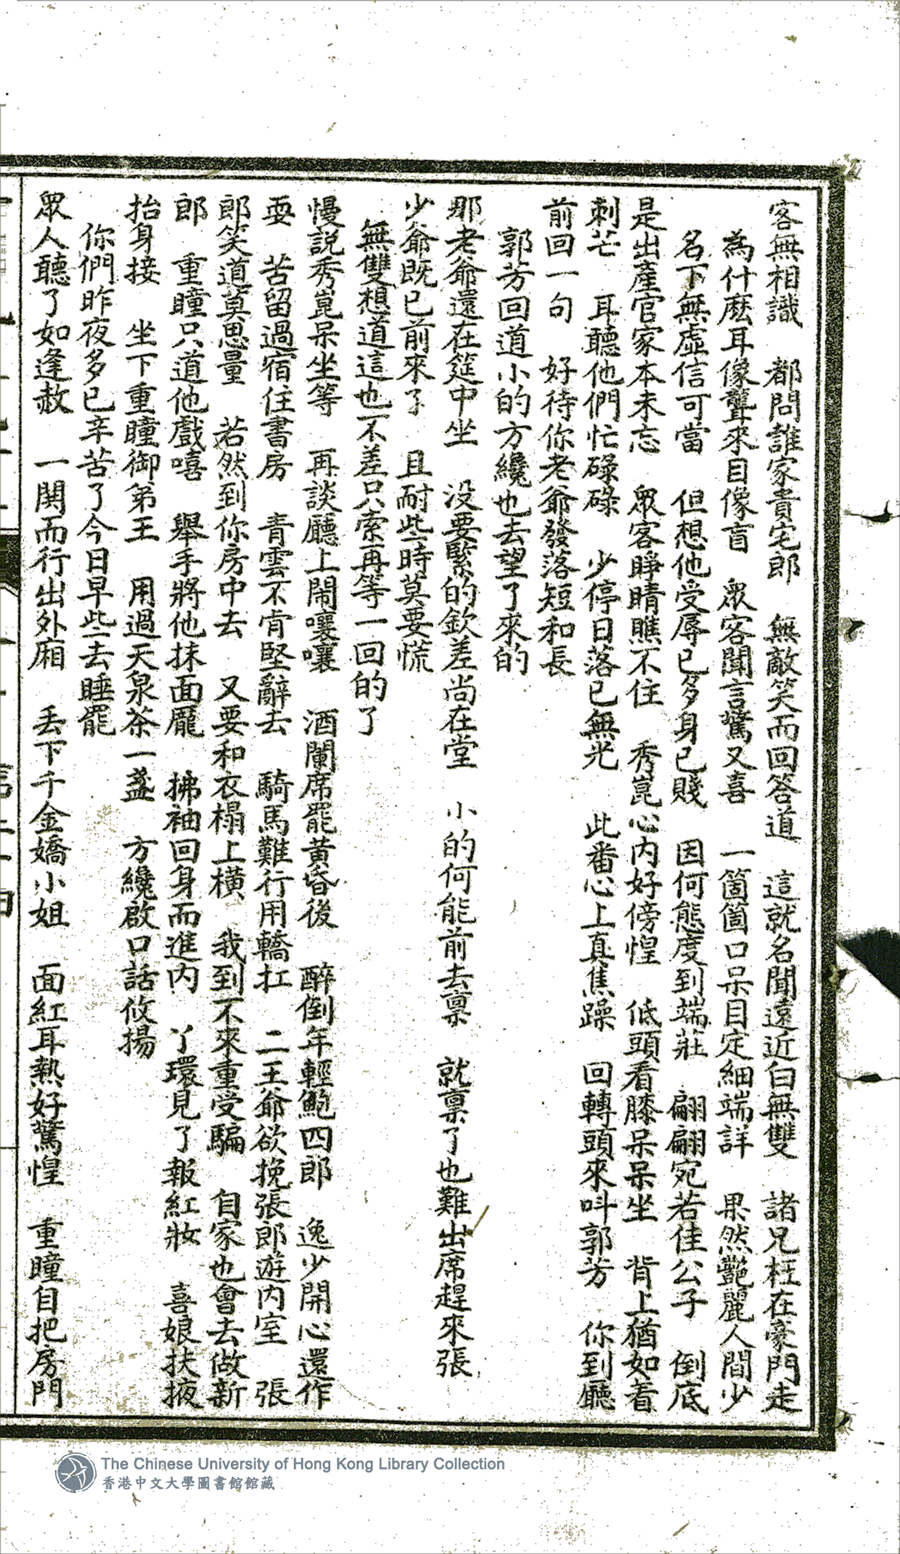 客無相識　都問誰家貴宅郎　無敵笑而回答道　這就名聞遠近白無雙　諸兄枉在豪門走
為什麼耳像聾來目像盲　眾客聞言驚又喜　一箇箇口呆目定細端詳　果然艷麗人間少
名下無虛信可當　但想他受辱已多身已賤　因何態度到端莊　翩翩宛若佳公子　倒底
是出產官家本未忘　眾客睜睛瞧不住　秀崑心內好傍惶　低頭看膝呆呆坐　背上猶如着
刺芒　耳聽他們忙碌碌　少停日落已無光　此番心上真焦躁　回轉頭來叫郭芳　你到廳
前回一句　好待你老爺發落短和長
郭芳回道小的方纔也去望了來的
那老爺還在筵中坐　没要緊的欽差尚在堂　小的何能前去禀　就禀了也難出席趕來張
少爺既已前來了　且耐些時莫要慌
無雙想道這也不差只索再等一回的了
慢說秀崑呆坐等　再談廳上鬧嚷嚷　酒闌席罷黃昏後　醉倒年輕鮑四郎　逸少開心還作
耍　苦留過宿住書房　青雲不肯堅辭去　騎馬難行用轎扛　二王爺欲挽張郎遊內室　張
郎笑道莫思量　若然到你房中去　又要和衣榻上橫　我到不來重受騙　自家也會去做新
郎　重瞳只道他戲嘻　舉手將他抹面龐　拂袖回身而進內　丫環見了報紅妝　喜娘扶掖
抬身接　坐下重瞳御弟王　用過天泉茶一盞　方纔啟口話攸揚
你們昨夜多已辛苦了今日早些去睡罷
眾人聽了如逢赦　一閧而行出外廂　丢下千金嬌小姐　面紅耳熱好驚惶　重瞳自把房門
The Chinese University of Hong Kong Library Collection
香港中文大學圖書館館藏